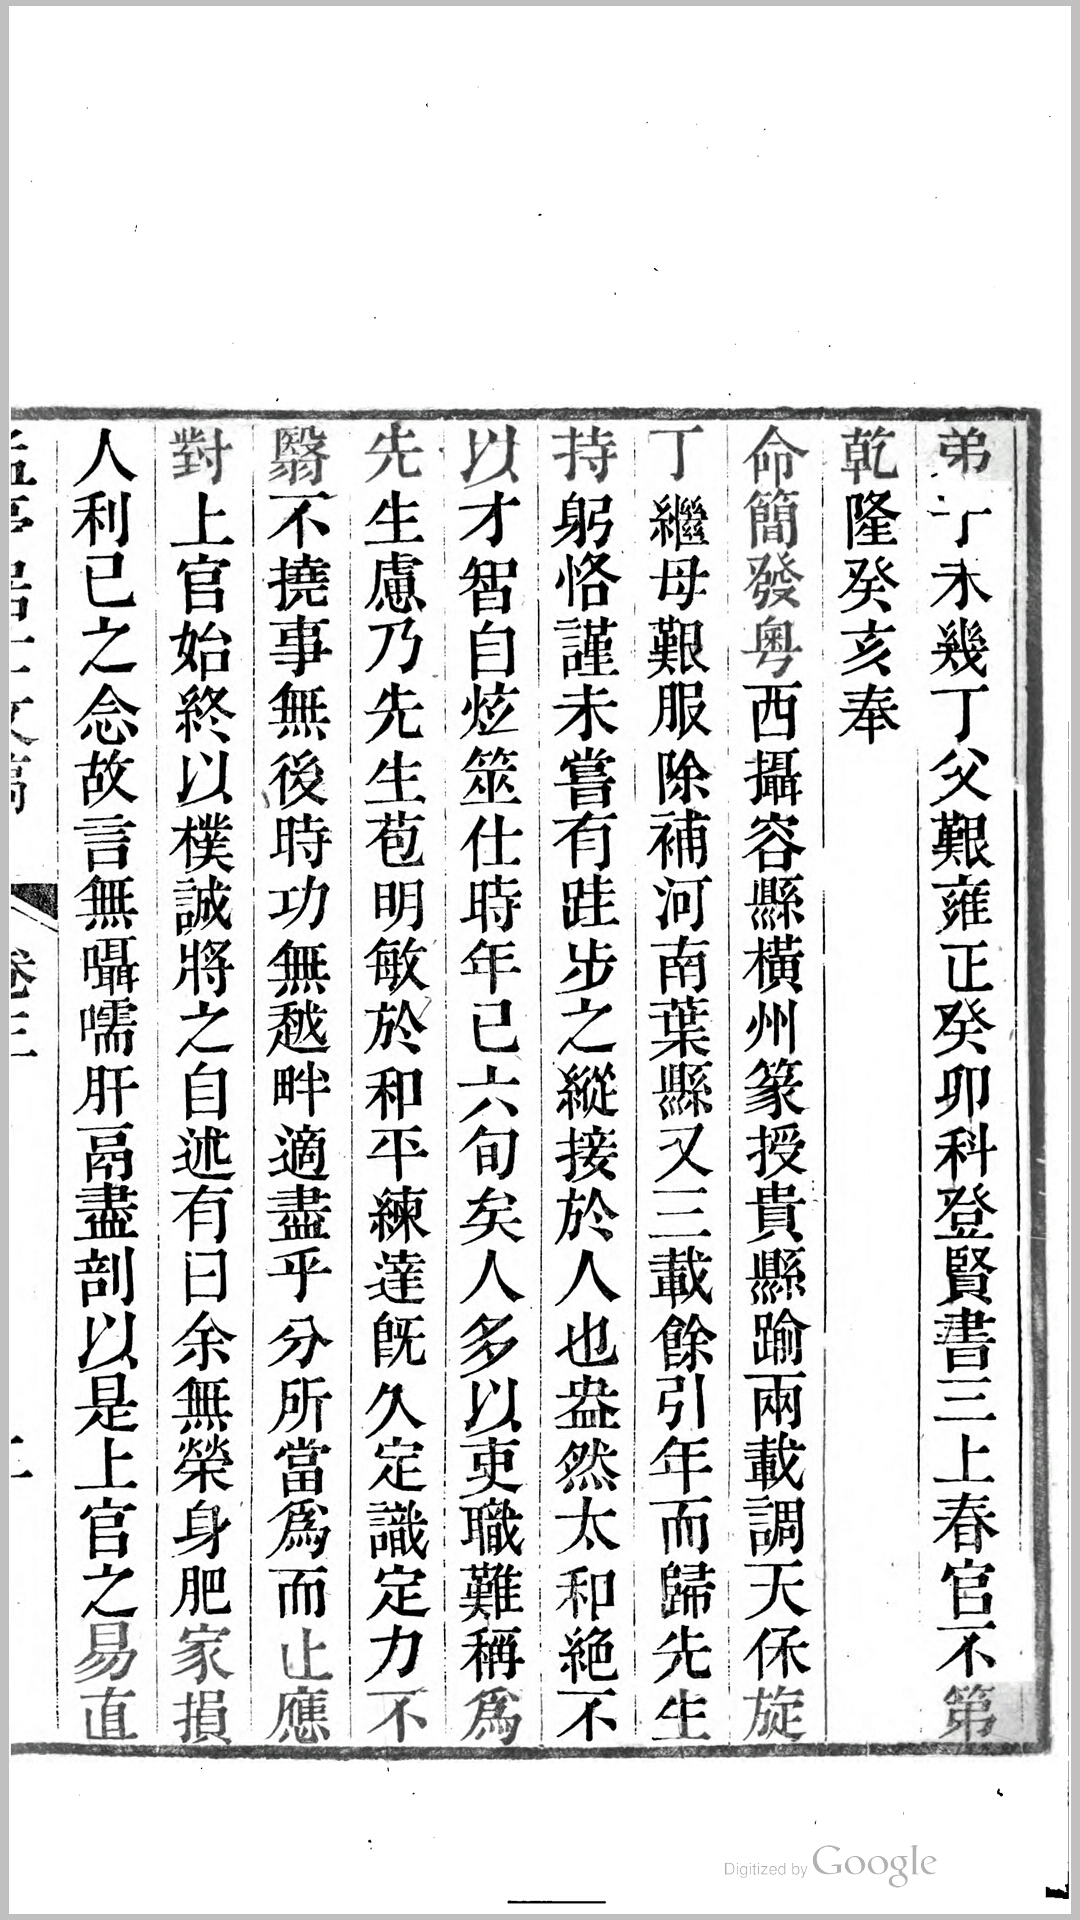 弟子未幾丁父艱雍正癸卯科登賢書三上春官不第
乾隆癸亥奉
命簡發粵西攝容縣橫州篆授貴縣踰兩載調天保旋
丁繼母艱服除補河南葉縣又三載餘引年而歸先生
持躬恪謹未嘗有跬步之縱接於人也盎然太和絕不
以才智自炫筮仕時年已六旬矣人多以吏職難稱爲
先生慮乃先生苞明敏於和平練達旣久定識定力不
翳不撓事無後時功無越畔適盡乎分所當爲而止應
對上官始終以樸誠將之自述有曰余無榮身肥家損
人利已之念故言無囁嚅肝鬲盡剖以是上官之易直
孟亭居士文稿 卷三 二
Digitized by Google